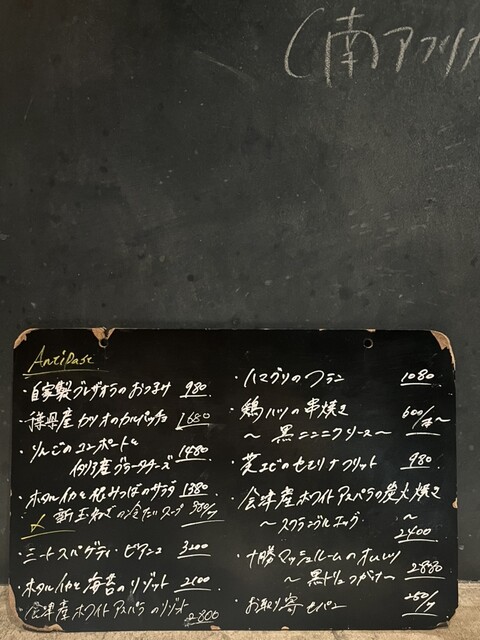 (南アフリカ
Antipast
・自家製ブレザオラのおつまみ 980
・産カツオのカルパッチョ 1680
・りんごのコンポートと
イタリア産ブラータチーズ 1480
・ホタルイカと根みつばのサラダ 1380
新玉ねぎの冷たいスープ 580/
・ミートスパゲティ・ビアンコ 3200
・ホタルイカと海苔のリゾット 2100
・会津産ホワイトアスパラのリゾット
2800
・ハマグリのフラン 1080
・鶏ハツの串焼き 600/
〜黒ニンニクソース〜
・芝エビのセモリナフリット 980
・会津産ホワイトアスパラの炭火焼き
〜スクランブルエッグ〜
2400
・十勝マッシュルームのオムレツ
〜黒トリュフがけ〜 2880
・お取り寄せパン 250/